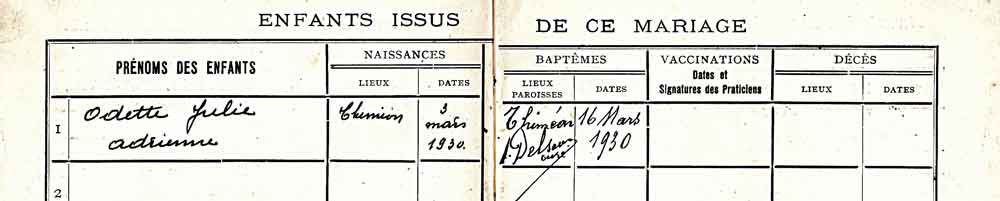 ENFANTS ISSUS DE CE MARIAGE
PRÉNOMS DES ENFANTS
NAISSANCES
LIEUX
DATES
BAPTÊMES
LIEUX
PAROISSES
DATES
VACCINATIONS
Dates et
Signatures des Praticiens
DÉCÈS
LIEUX
DATES
1
Odette Julie
adrienne
3
mars
1930.
Thiméon
16 Mars
1930
2